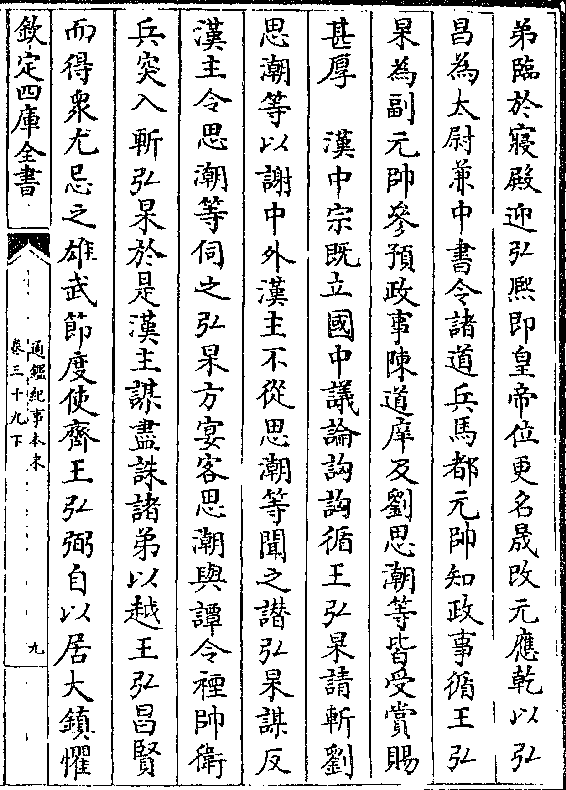 弟臨於寢殿迎弘熈即皇帝位更名晟改元應乾以弘
昌為太尉兼中書令諸道兵馬都元帥知政事循王弘
杲為副元帥參預政事陳道庠及劉思潮等皆受賞賜
甚厚　漢中宗既立國中議論訩訩循王弘杲請斬劉
思潮等以謝中外漢主不從思潮等聞之譖弘杲謀反
漢主令思潮等伺之弘杲方宴客思潮與譚令禋帥衛
兵突入斬弘杲於是漢主謀盡誅諸弟以越王弘昌賢
而得衆尤忌之雄武節度使齊王弘弼自以居大鎮懼
欽定四庫全書
通鑑紀事本末
卷三十九下
九